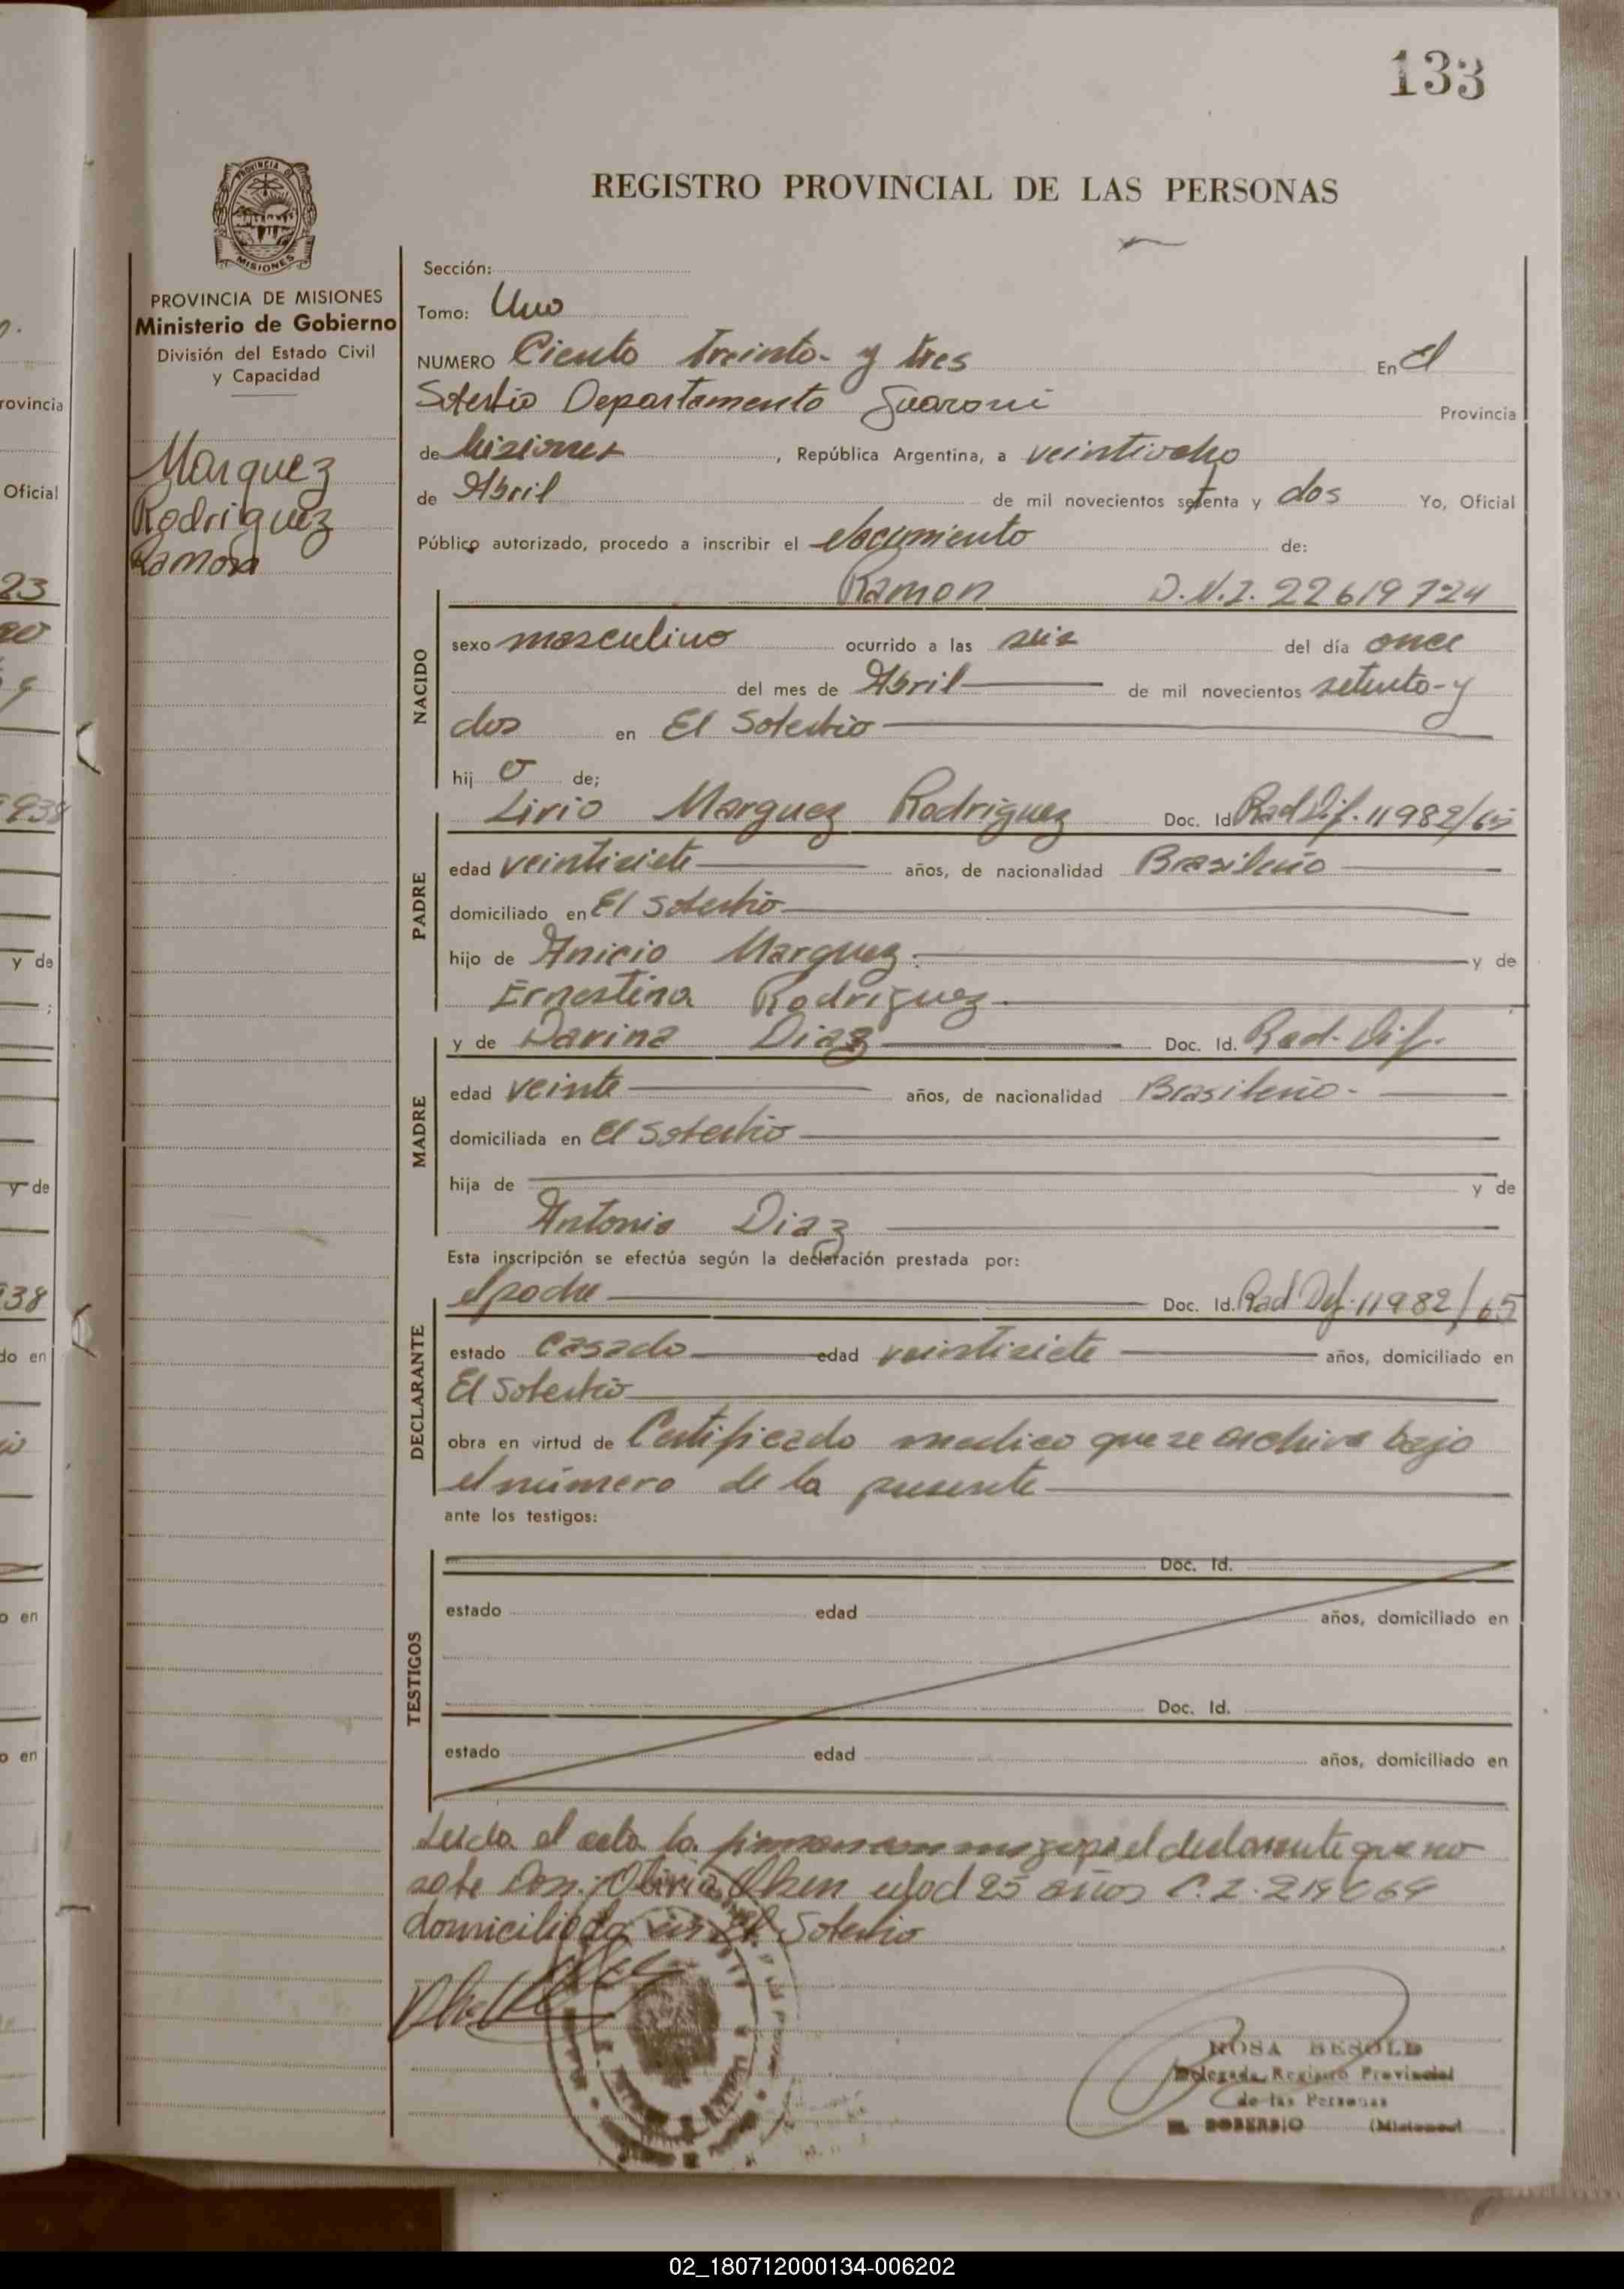 133
PROVINCIA DE
MISIONES
REGISTRO PROVINCIAL DE LAS PERSONAS
PROVINCIA DE MISIONES
Ministerio de Gobierno
División del Estado Civil
y Capacidad
Marquez
Rodriguez
Ramon
Sección:
Tomo: Uno
NUMERO Ciento treinta y tres En El
Soberbio Departamento Guarani Provincia
de Misiones, República Argentina, a veintiocho
de Abril de mil novecientos setenta y dos Yo, Oficial
Público autorizado, procedo a inscribir el nacimiento de:
Ramon D.N.I. 22619724
NACIDO
sexo masculino ocurrido a las seis del día once
del mes de Abril de mil novecientos setenta y
dos en El Soberbio
hij o de;
PADRE
Lirio Marquez Rodriguez Doc. Id. Rad Dif. 11982/65
edad veintisiete años, de nacionalidad Brasileño
domiciliado en El Soberbio
hijo de Anicio Marquez y de
Ernestina Rodriguez
MADRE
y de Darina Diaz Doc. Id. Rad. Dif.
edad veinte años, de nacionalidad Brasileño
domiciliada en El Soberbio
hija de y de
Antonia Diaz
Esta inscripción se efectúa según la declaración prestada por:
DECLARANTE
el padre Doc. Id. Rad Def. 11982/65
estado casado edad veintisiete años, domiciliado en
El Soberbio
obra en virtud de Certificado medico que se archiva bajo
el número de la presente
ante los testigos:
TESTIGOS
Doc. Id.
estado edad años, domiciliado en
Doc. Id.
estado edad años, domiciliado en
Leida el acta la firman con migo por el declarante que no
sabe Don: edad 25 años C.I.
domiciliado en El Soberbio
ROSA BESOLD
Delegada Registro Provincial
de las Personas
EL SOBERBIO (Misiones)
02_180712000134-006202